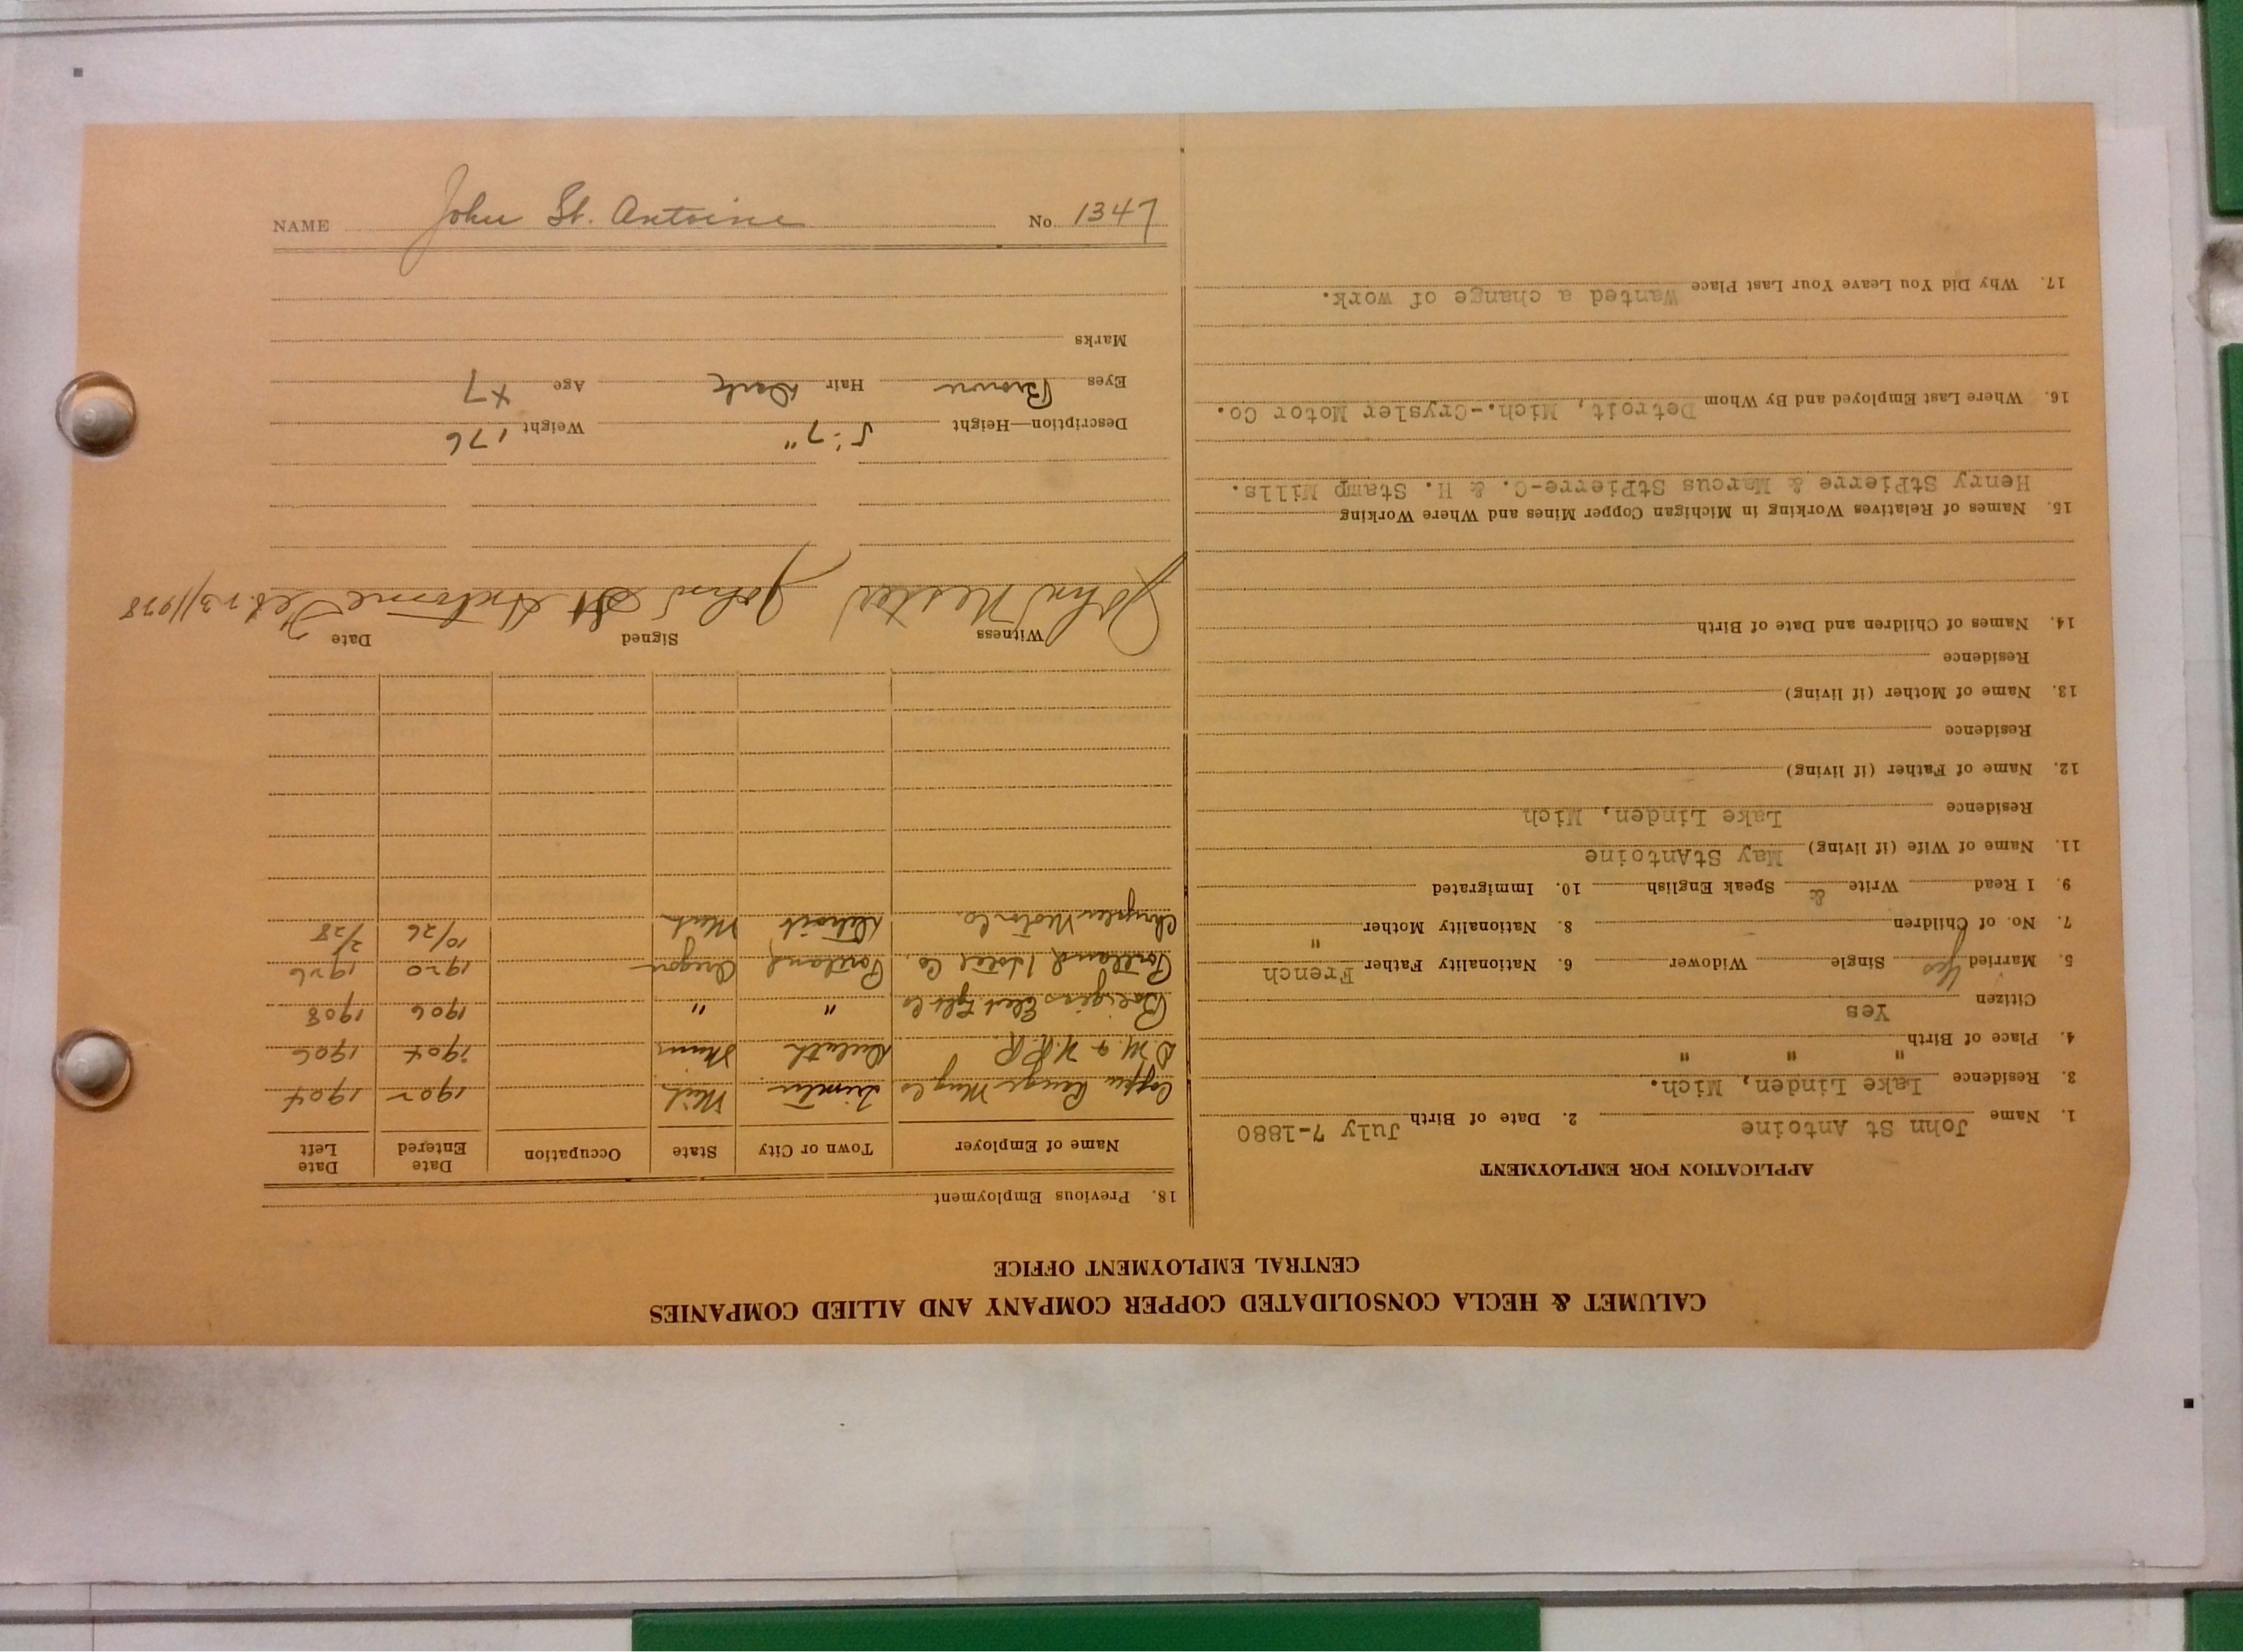 CALUMET & HECLA CONSOLIDATED COPPER COMPANY AND ALLIED COMPANIES
CENTRAL EMPLOYMENT OFFICE
APPLICATION FOR EMPLOYMENT
1. Name John St Antoine 2. Date of Birth July 7-1880
3. Residence Lake Linden, Mich.
4. Place of Birth " " "
Citizen Yes
5. Married Yes Single Widower 6. Nationality Father French
7. No. of Children 8. Nationality Mother "
9. I Read Write & Speak English 10. Immigrated
11. Name of Wife (if living) May StAntoine
Residence Lake Linden, Mich
12. Name of Father (if living)
Residence
13. Name of Mother (if living)
Residence
14. Names of Children and Date of Birth
15. Names of Relatives Working in Michigan Copper Mines and Where Working
Henry StPierre & Marcus StPierre-C. & H. Stamp Mills.
16. Where Last Employed and By Whom Detroit, Mich.-Crysler Motor Co.
17. Why Did You Leave Your Last Place Wanted a change of work.
18. Previous Employment
Name of Employer Town or City State Occupation Date Entered Date Left
Copper Range Mng Co Mich 1902 1904
D.M. & N.R.R. Duluth Minn 1904 1906
Elect Light Co " " 1906 1908
Portland Hotel Co. Portland, Oregon 1920 1926
Chrysler Motor Co. Detroit Mich 10/26 2/28
Witness Signed Date
John Nester John St Antoine Feb. 23/1928
Description—Height 5'-7" Weight 176
Eyes Brown Hair Dark Age 47
Marks
NAME John St. Antoine No. 1347